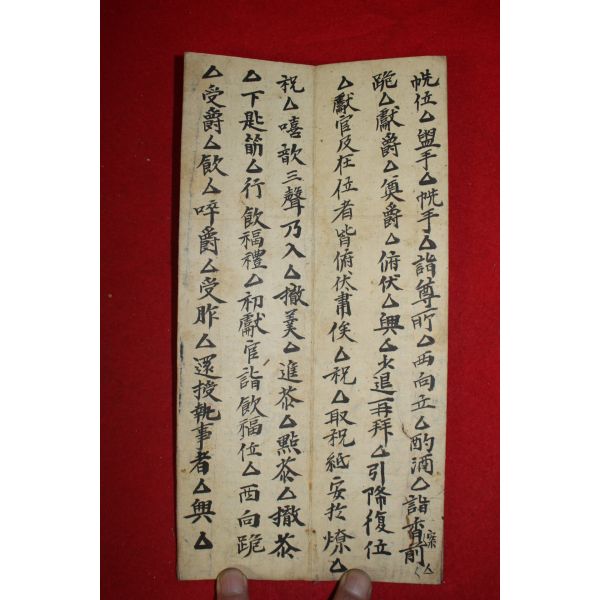 帨位△盥手△帨手△詣尊所△西向立△酌酒△詣香前△
跪△獻爵△奠爵△俯伏△興△少退再拜△引降復位
△獻官及在位者皆俯伏肅俟△祝△取祝紙安於燎△
祝△嘻歆三聲乃入△撤羹△進茶△點茶△撤茶
△下匙筯△行飮福禮△初獻官詣飮福位△西向跪
△受爵△飮△啐爵△受胙△還授執事者△興△